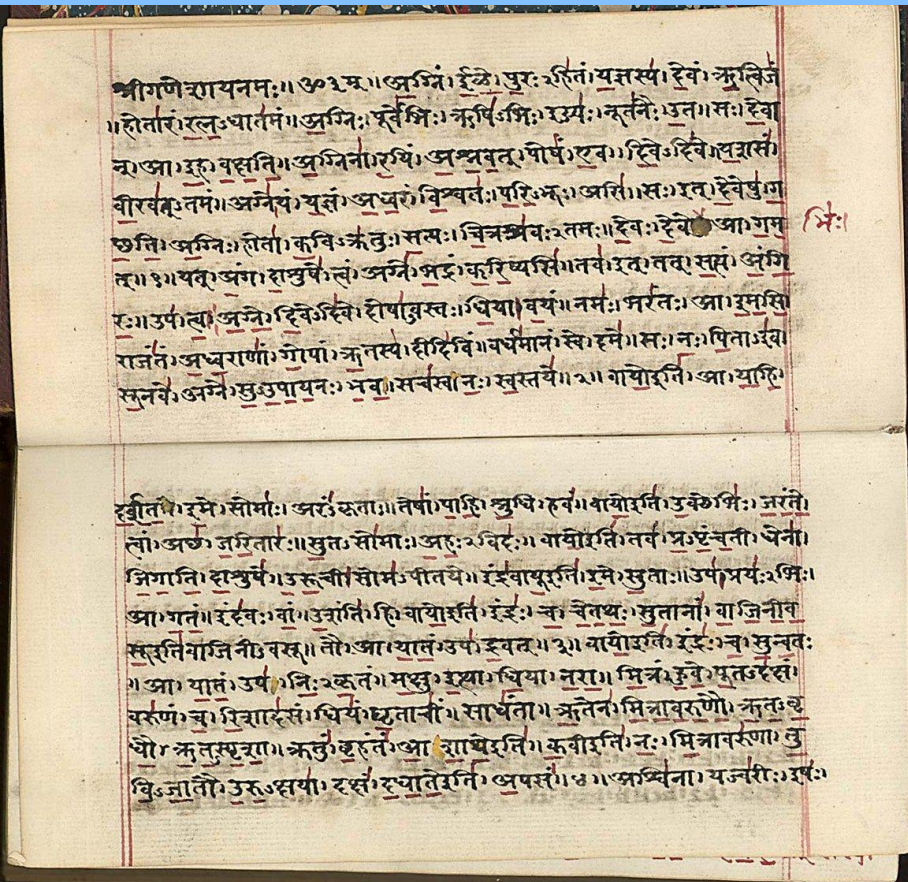 श्रीगणेशायनमः॥ॐ३म्॥अग्निं।ईळे।पुरःऽहितं।यज्ञस्य।देवं।ऋत्विजं
॥होतारं।रत्नऽधातमं॥अग्निः।पूर्वेभिः।ऋषिऽभिः।ईड्यः।नूतनैः।उत॥सः।देवा
न्।आ।इह।वक्षति॥अग्निना।रयिं।अश्नवत्।पोषं।एव।दिवेऽदिवे॥यशसं।
वीरवत्ऽतमं॥अग्ने।यं।यज्ञं।अध्वरं।विश्वतः।परिऽभूः।असि॥सः।इत्।देवेषु।ग
च्छति।अग्निः।होता।कविऽक्रतुः।सत्यः।चित्रश्रवःऽतमः॥देवः।देवे आ।गम
भिः।
त्॥१॥यत्।अंग।दाशुषे।त्वं।अग्ने।भद्रं।करिष्यसि॥तव।इत्।तत्।सत्यं।अंगि
रः॥उप।त्वा।अग्ने।दिवेऽदिवे।दोषाऽवस्तः।धिया।वयं॥नमः।भरंतः।आ।इमसि
राजंतं।अध्वराणां।गोपां।ऋतस्य।दीदिविं॥वर्धमानं।स्वे।दमे॥सः।नः।पिताऽइव।
सूनवे।अग्ने।सुऽउपायनः।भव॥सचस्व।नः।स्वस्तये॥२॥वायोइति।आ।याहि।
दर्शत।इमे।सोमाः।अरंऽकृताः॥तेषां।पाहि।श्रुधि।हवं॥वायोइति।उक्थेभिः।जरंते।
त्वां।अच्छ।जरितारः॥सुतऽसोमाः।अहःऽविदः॥वायोइति।तव।प्रऽपृंचती।धेना।
जिगाति।दाशुषे॥उरूची।सोमऽपीतये॥इंद्रवायूइति।इमे।सुताः॥उप।प्रयःऽभिः।
आ।गतं॥इंदवः।वां।उशंति।हि।वायोइति।इंद्रः।च।चेतथः।सुतानां।वाजिनीव
सूइतिवाजिनीऽवसू॥तौ।आ।यातं।उप।द्रवत्॥३॥वायोइति।इंद्रः।च।सुन्वतः
॥आ।यातं।उप।निःऽकृतं॥मक्षु।इत्था।धिया।नरा॥मित्रं।हुवे।पूतऽदक्षं
वरुणं।च।रिशादसं।धियं।घृताचीं।साधंता॥ऋतेन।मित्रावरुणौ।ऋतऽवृ
धौ।ऋतऽस्पृशा॥क्रतुं।बृहंतं।आ।शाथेइति।कवीइति।नः।मित्रावरुणा।तु
विऽजातौ।उरुऽक्षया।दक्षं।दधातेइति।अपसं॥४॥अश्विना।यज्वरीः।इषः।